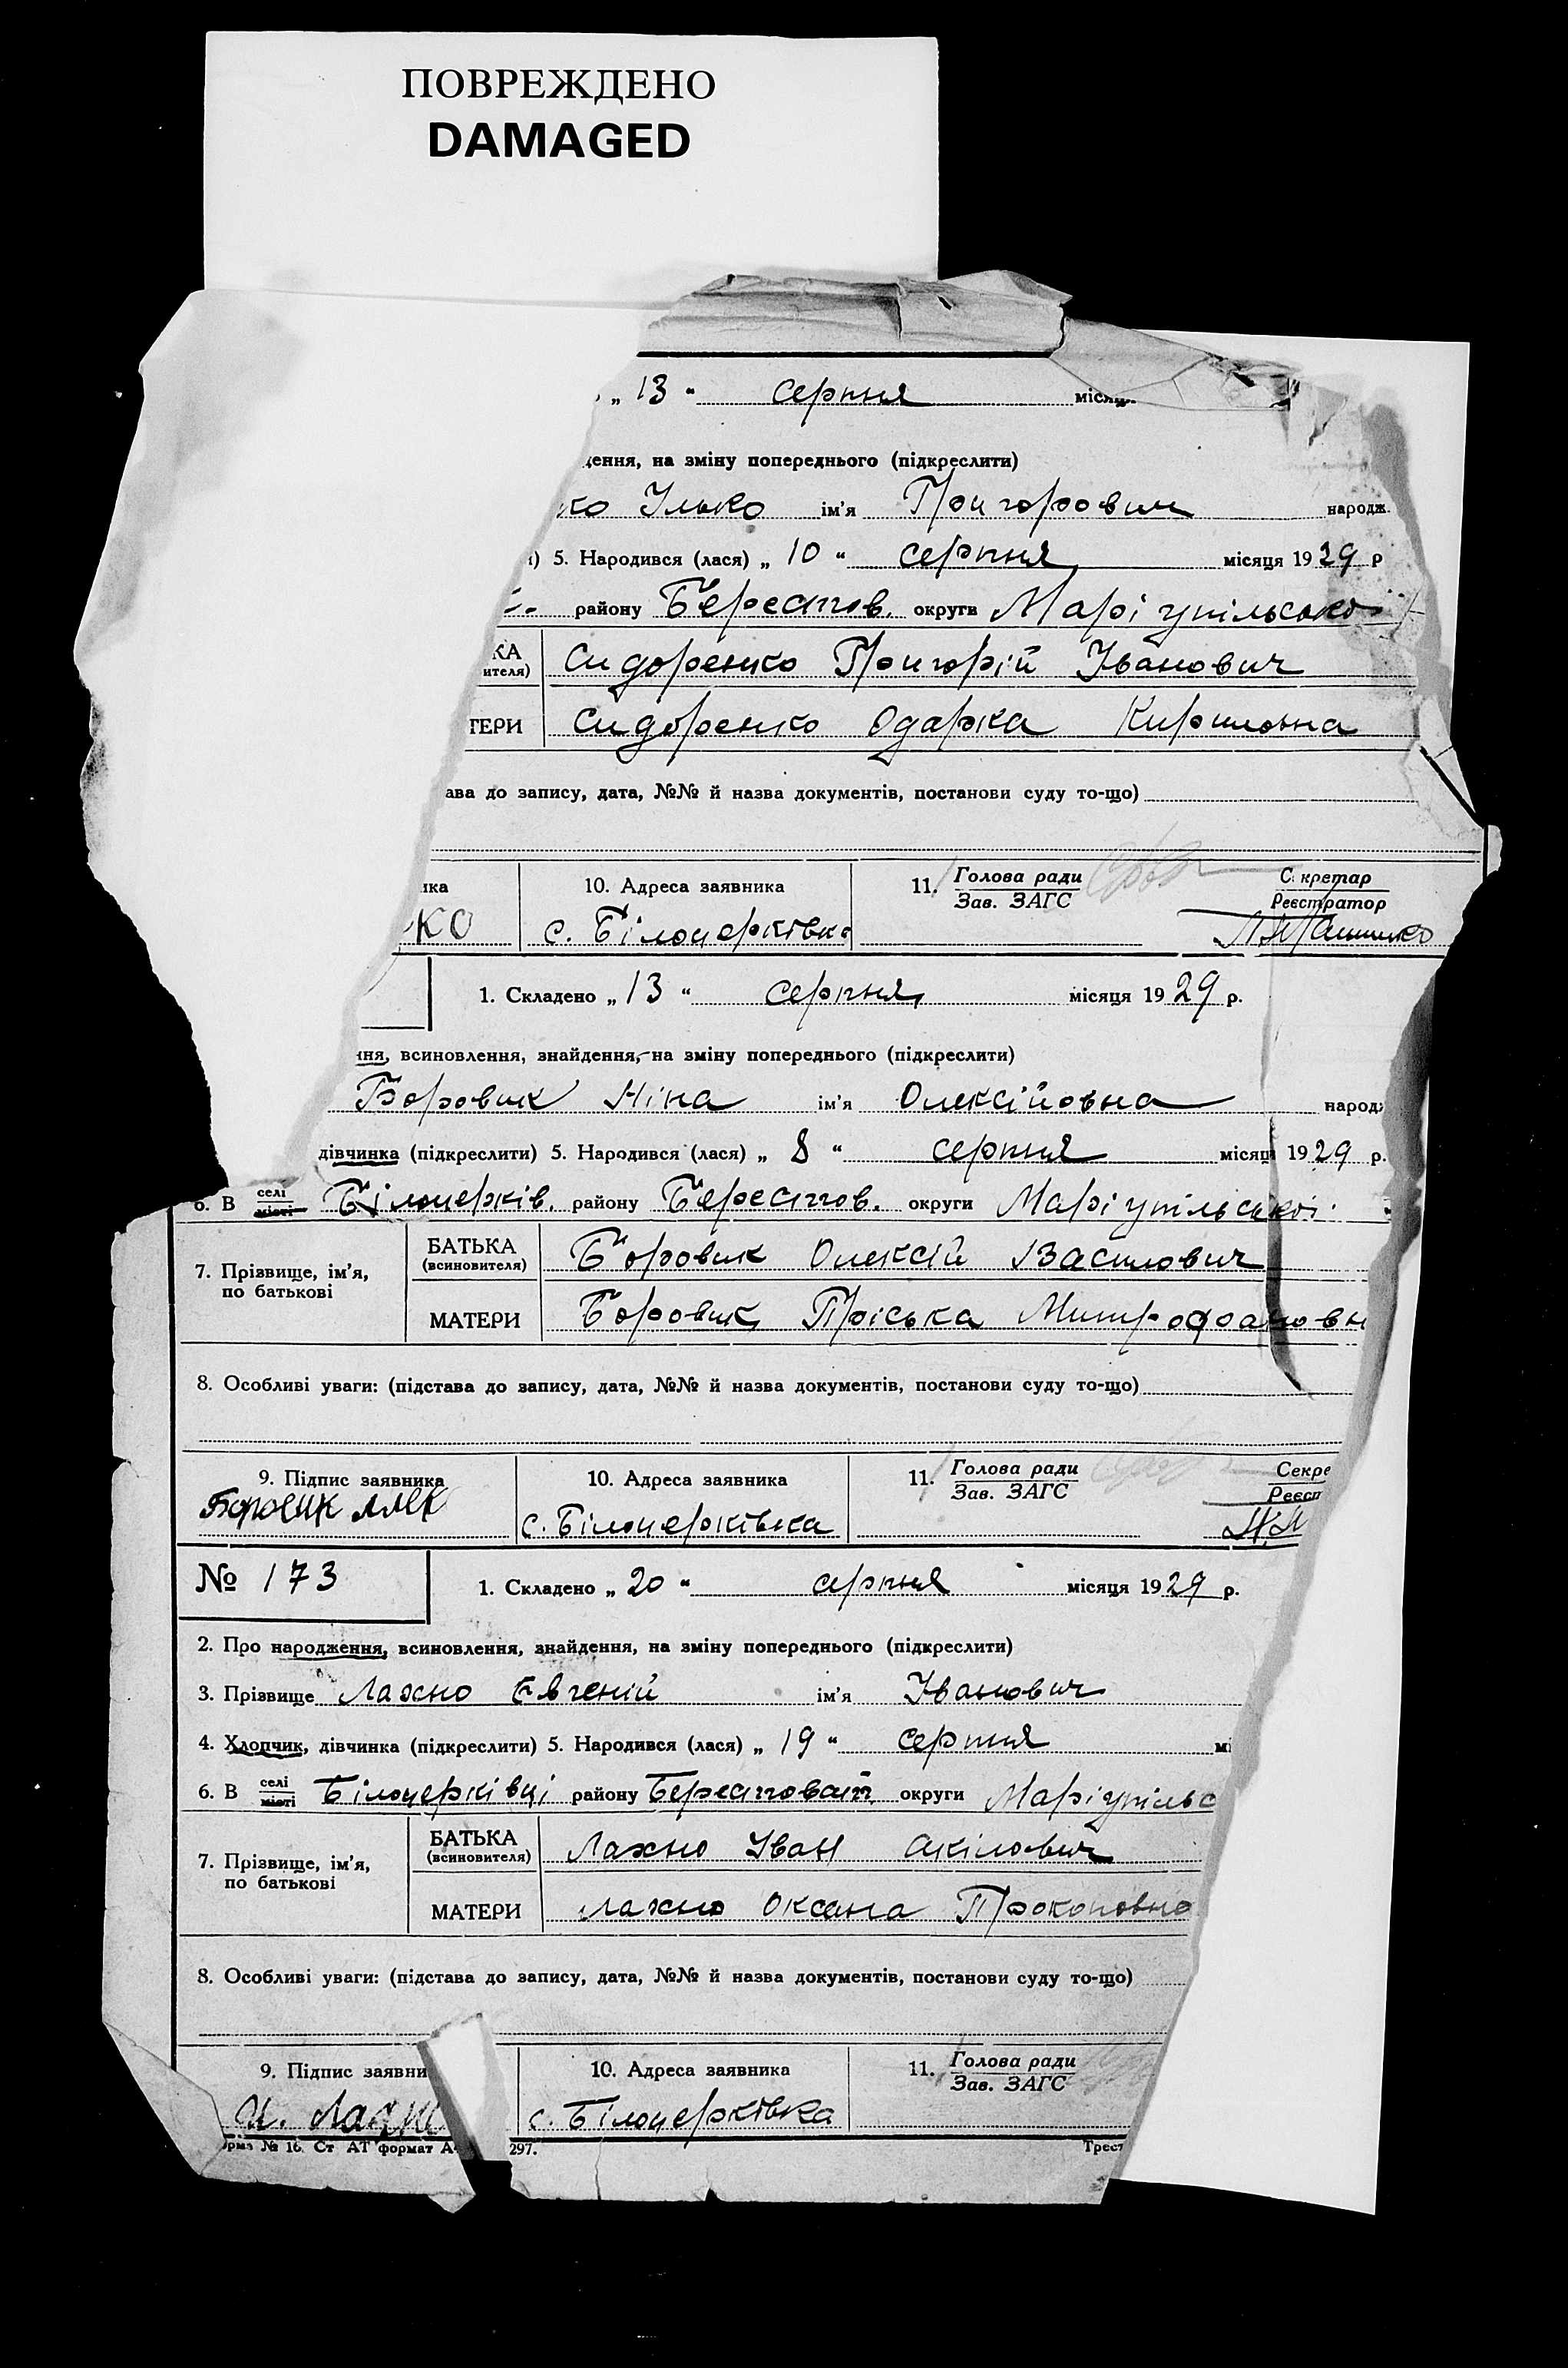 ПОВРЕЖДЕНО
DAMAGED
„ 13 “ серпня
дення, на зміну попереднього (підкреслити)
ко Ілько ім'я Григорович народж.
5. Народився (лася) „ 10 “ серпня місяця 1929 р
району Берестов. округи Маріупільської
КА Сидоренко Григорій Іванович
ителя)
ТЕРИ Сидоренко Одарка Кириловна
ава до запису, дата, №№ й назва документів, постанови суду то-що)
ика 10. Адреса заявника 11. Голова ради Секретар
Зав. ЗАГС Реєстратор
КО с. Білоцерківка
1. Складено „ 13 “ серпня місяця 1929 р.
ння, всиновлення, знайдення, на зміну попереднього (підкреслити)
Боровик Ніна ім'я Олексійовна народж
дівчинка (підкреслити) 5. Народився (лася) „ 8 “ серпня місяця 1929 р.
6. В селі місті Білоцерків. району Берестов. округи Маріупільської
7. Прізвище, ім'я, по батькові
БАТЬКА (всиновителя) Боровик Олексій Василович
МАТЕРИ Боровик Пріська Митрофановн
8. Особливі уваги: (підстава до запису, дата, №№ й назва документів, постанови суду то-що)
9. Підпис заявника 10. Адреса заявника 11. Голова ради Секре
Зав. ЗАГС Реєст
Боровик с. Білоцерківка
№ 173 1. Складено „ 20 “ серпня місяця 1929 р.
2. Про народження, всиновлення, знайдення, на зміну попереднього (підкреслити)
3. Прізвище Лахно Євгеній ім'я Іванович
4. Хлопчик, дівчинка (підкреслити) 5. Народився (лася) „ 19 “ серпня мі
6. В селі місті Білоцерківці району Берестоват. округи Маріупільс
7. Прізвище, ім'я, по батькові
БАТЬКА (всиновителя) Лахно Іван Акілович
МАТЕРИ Лахно Оксана Прокоповна
8. Особливі уваги: (підстава до запису, дата, №№ й назва документів, постанови суду то-що)
9. Підпис заявни 10. Адреса заявника 11. Голова ради
Зав. ЗАГС
с. Білоцерківка
орма № 16. Ст АТ формат А 297. Трест